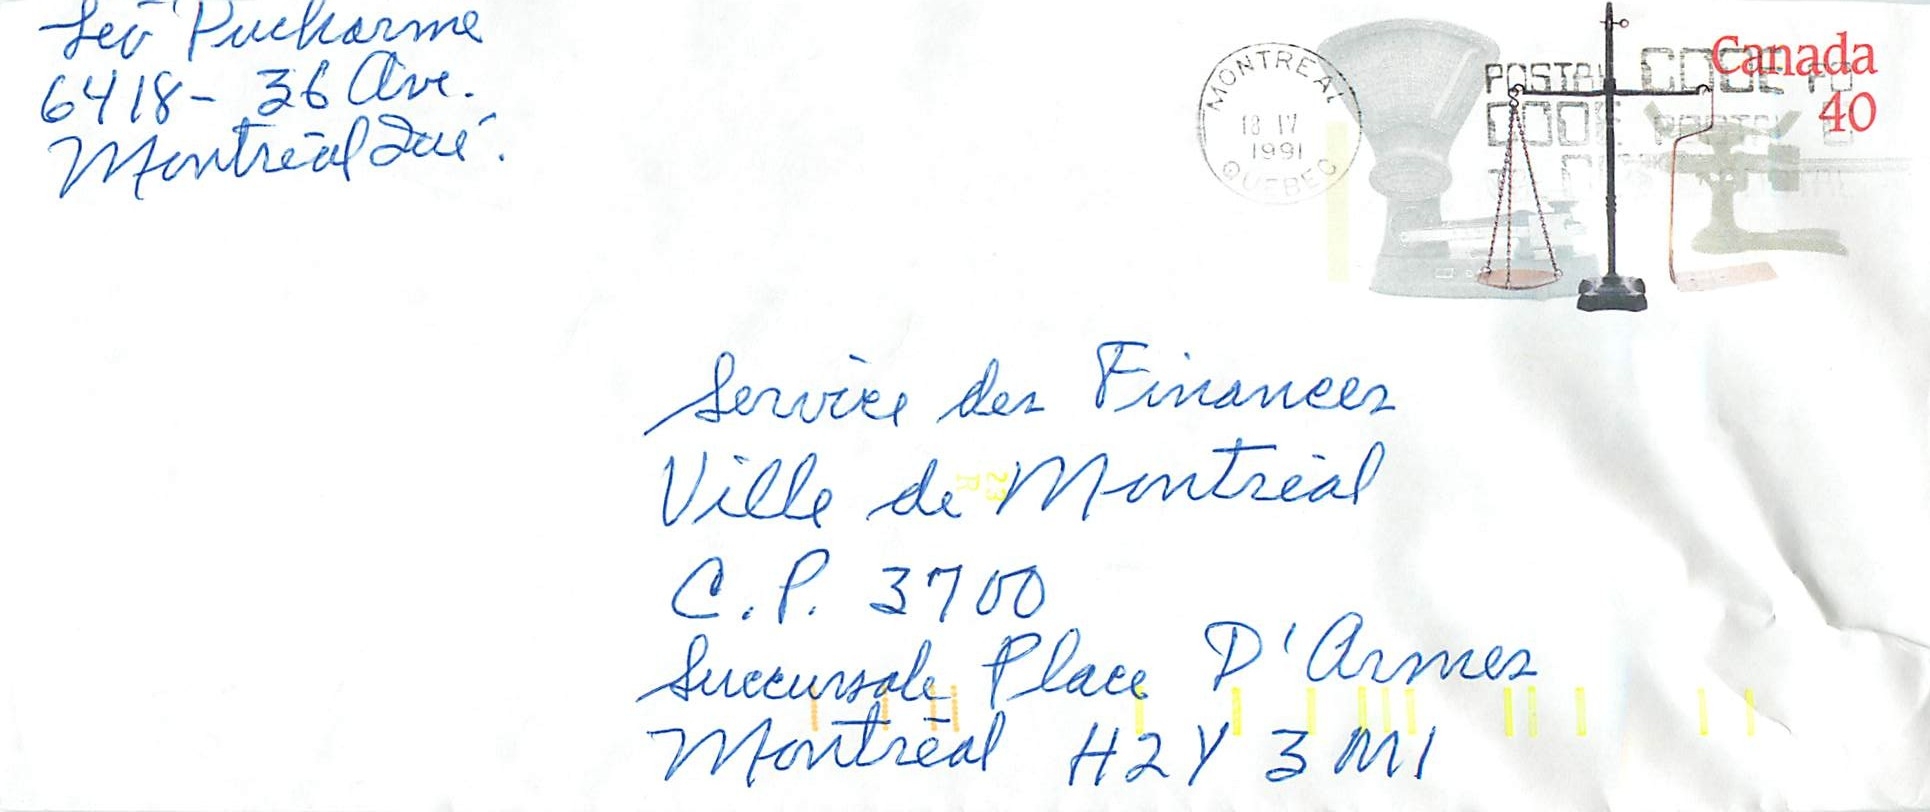 Léo Ducharme
6418 - 36 Ave.
Montréal Qué.
MONTREAL
18 IV
1991
QUEBEC
POSTAL CODE
CODE POSTAL
Canada
40
Service des Finances
Ville de Montréal
23
R
C.P. 3700
Succursale Place D'Armes
Montréal H2Y 3M1